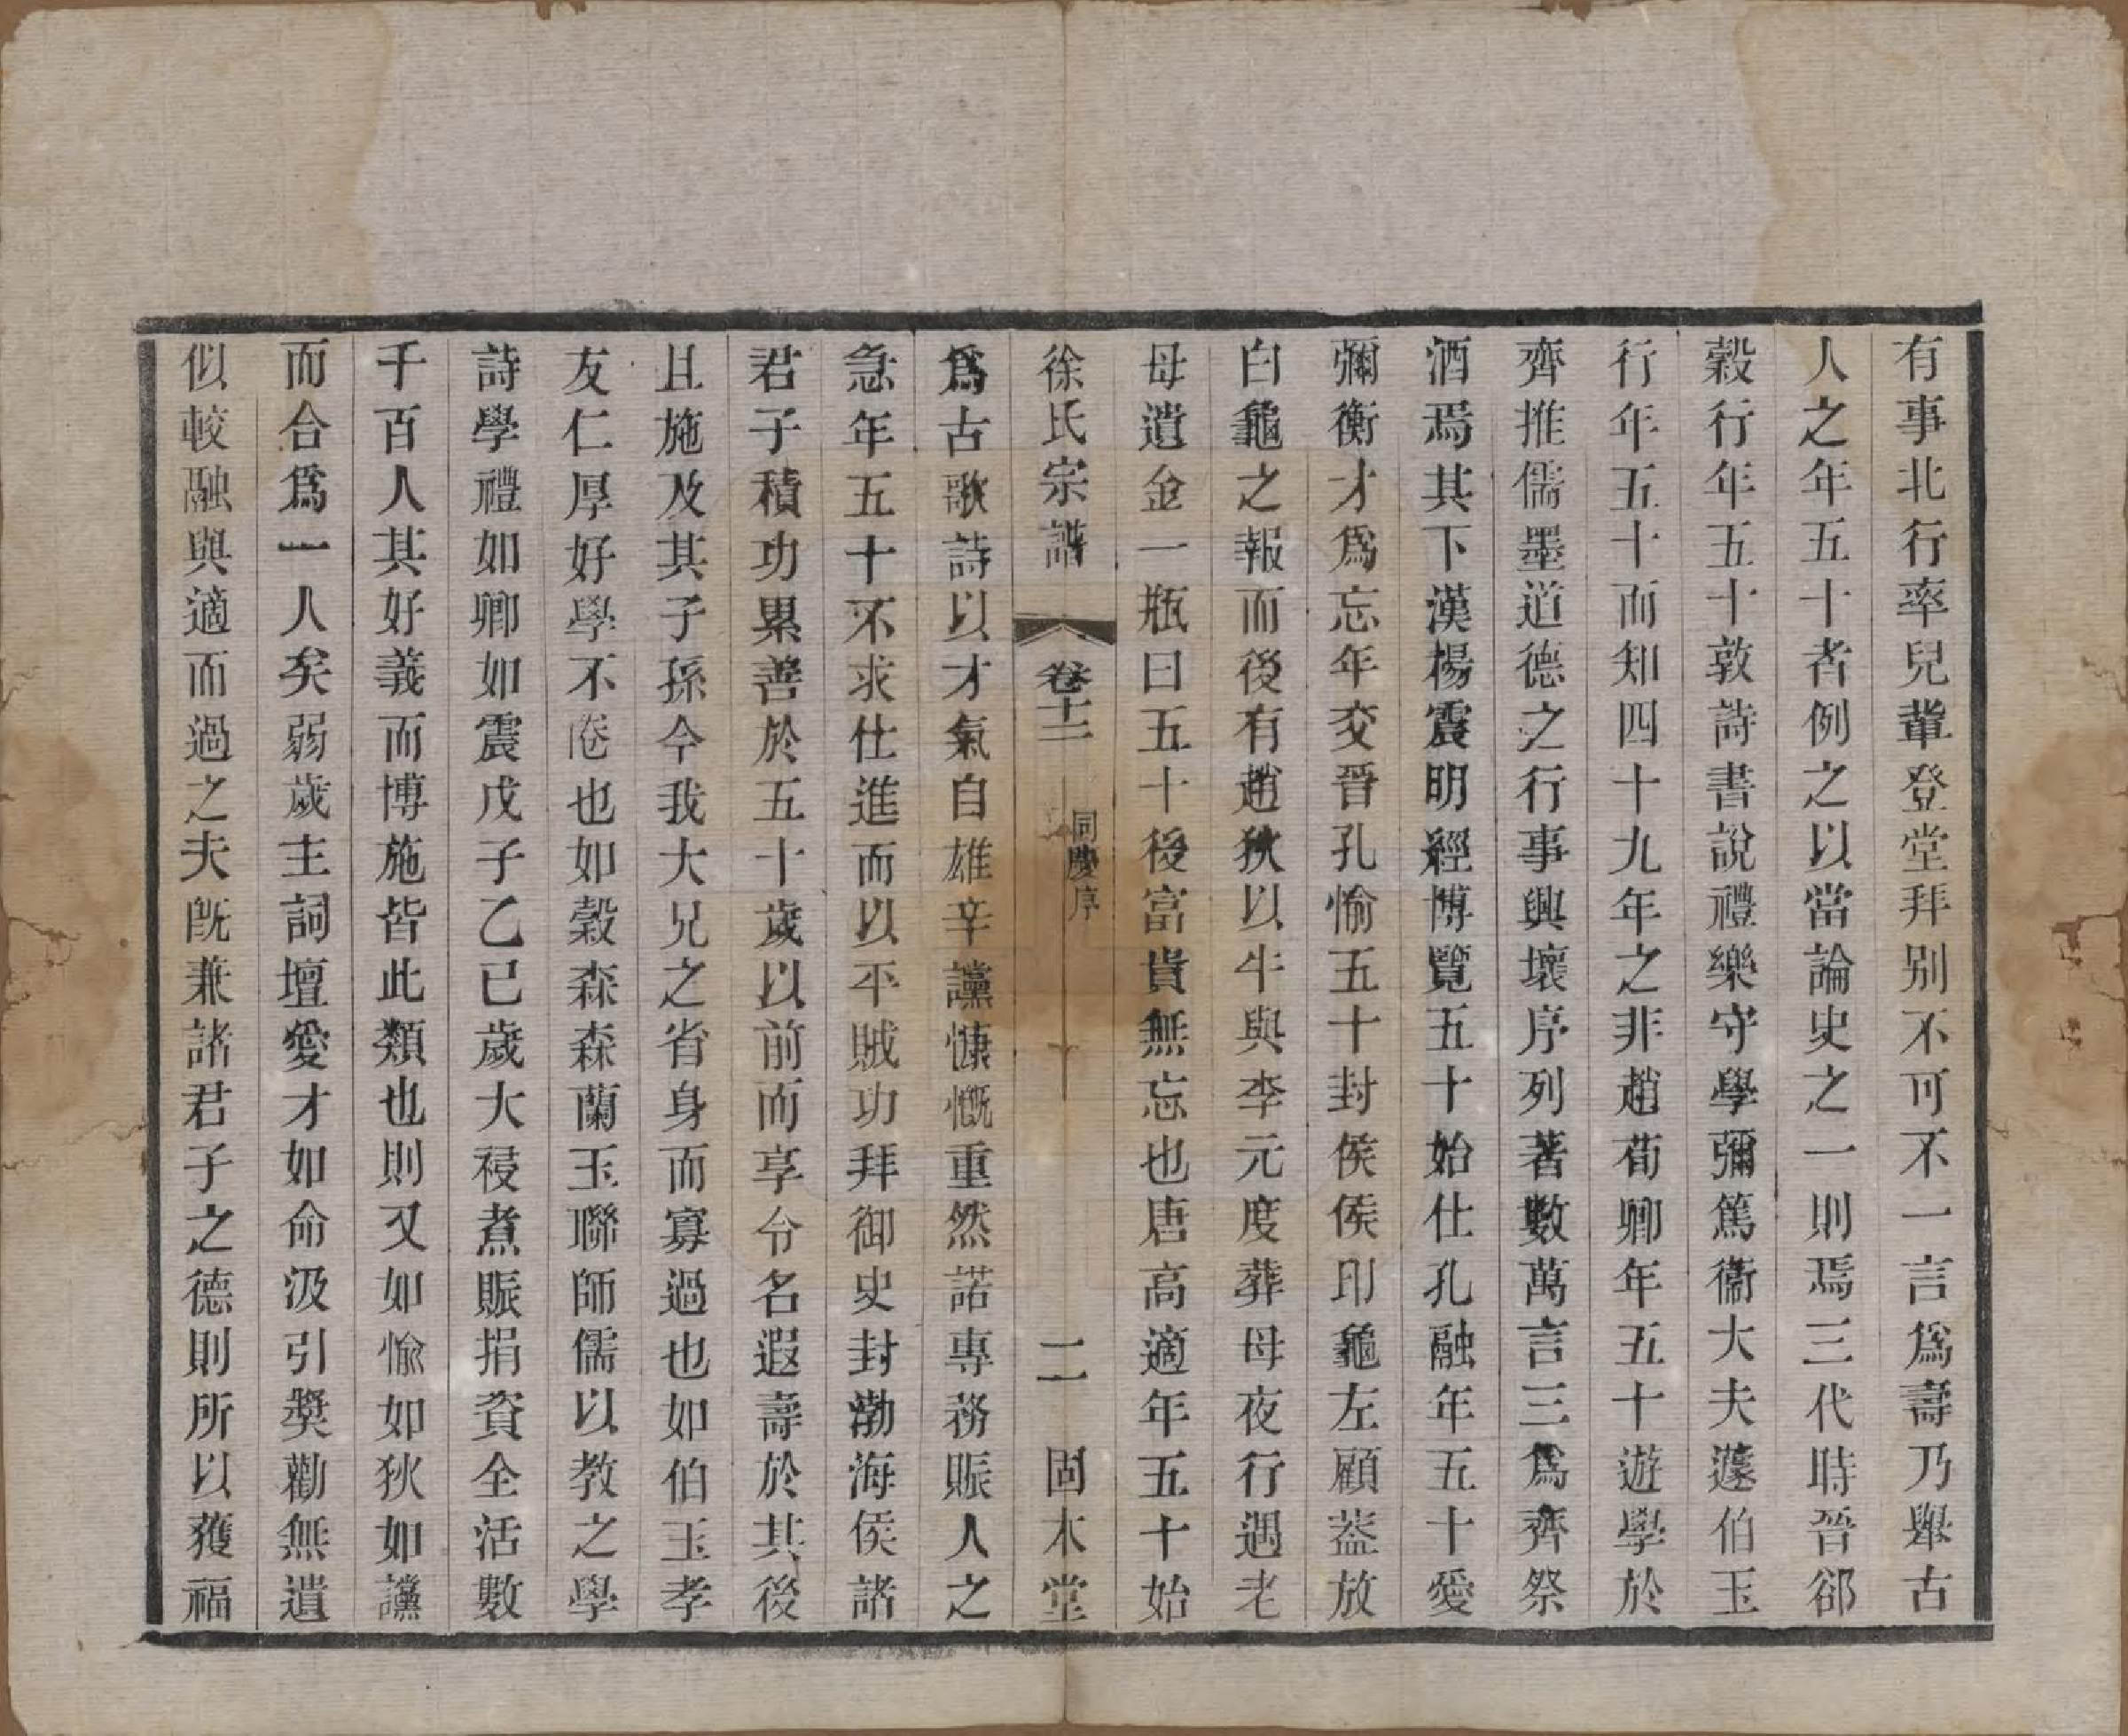 有事北行率兒輩登堂拜别不可不一言爲壽乃舉古
人之年五十者例之以當論史之一則焉三代時晉郤
縠行年五十敦詩書說禮樂守學彌篤衞大夫蘧伯玉
行年五十而知四十九年之非趙荀卿年五十遊學於
齊推儒墨道德之行事興壞序列著數萬言三爲齊祭
酒焉其下漢楊震明經博覽五十始仕孔融年五十愛
彌衡才爲忘年交晉孔愉五十封侯侯印龜左顧葢放
白龜之報而後有趙狄以牛與李元度葬母夜行遇老
母遺金一瓶曰五十後富貴無忘也唐高適年五十始
徐氏宗譜 卷十二 同慶序 二 固本堂
爲古歌詩以才氣自雄辛讜慷慨重然諾專務賑人之
急年五十不求仕進而以平賊功拜御史封渤海侯諸
君子積功累善於五十歲以前而享令名遐壽於其後
且施及其子孫今我大兄之省身而寡過也如伯玉孝
友仁厚好學不倦也如縠森森蘭玉聯師儒以教之學
詩學禮如卿如震戊子乙巳歲大祲煮賑捐資全活數
千百人其好義而博施皆此類也則又如愉如狄如讜
而合爲一人矣弱歲主詞壇愛才如命汲引奬勸無遺
似較融與適而過之夫旣兼諸君子之德則所以獲福